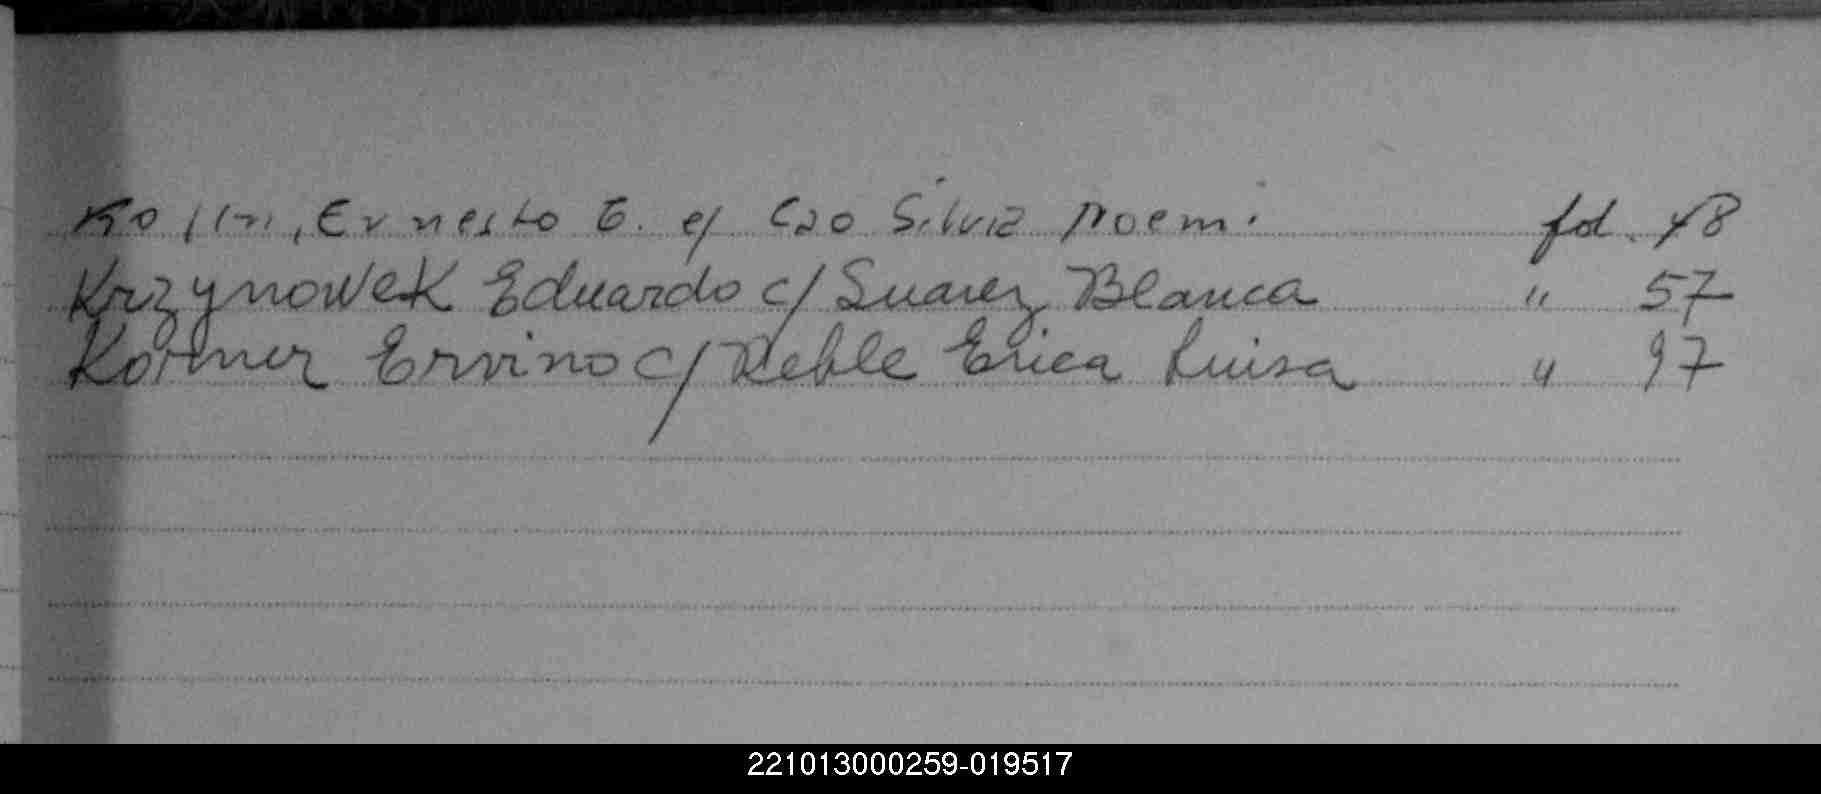 Ernesto E. c/ Cao Silvia Noemi fol. 48
Krzynowek Eduardo c/ Suarez Blanca " 57
Kormer Ervino c/ Reble Erica Luisa " 97
221013000259-019517